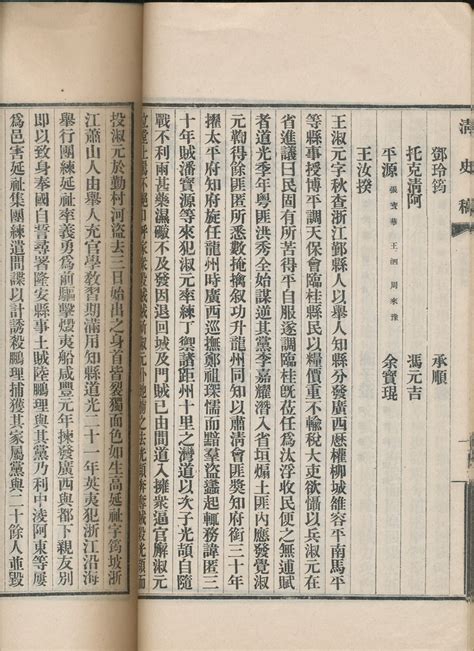 清史稿
鄧玲筠 承順
托克清阿 馮元吉
平源 張寶華 王泗 周來豫 余寶琨
王汝揆
王淑元字秋查浙江鄞縣人以舉人知縣分發廣西歷權柳城雒容平南馬平
等縣事授博平調天保會臨桂縣民以糧價重不輸稅大吏欲懾以兵淑元在
省進議曰民固有所苦得平自服遂調臨桂既莅任為汰浮收民便之無逋賦
者道光季年粵匪洪秀全始謀逆其黨李嘉耀潛入省垣煽土匪內應發覺淑
元鞫得餘匪匿所悉數掩擒敘功升龍州同知以肅清會匪獎知府銜三十年
擢太平府知府旋任龍州時廣西巡撫鄭祖琛懦而黯羣盜蠭起輒務諱匿三
十年賊潘寶源等來犯淑元率練丁禦諸距州十里之灣道以次子光頡自隨
戰不利雨甚藥濕礮不及發退回城及賊已由間道入擁衆逼官廨淑元
投淑元於勤村河盜去三日始出之身首皆裂獨面色如生高延祉字筠坡浙
江蕭山人由舉人充官學教習期滿用知縣道光二十一年英夷犯浙江沿海
舉行團練延祉率義勇為前驅擊燬夷船咸豐元年揀發廣西與都下親友別
即以致身奉國自誓尋署隆安縣事土賊陸鵬理與其黨乃利中淩阿東等屢
為邑害延祉集團練遣間諜以計誘殺鵬理捕獲其家屬黨與二十餘人並毀